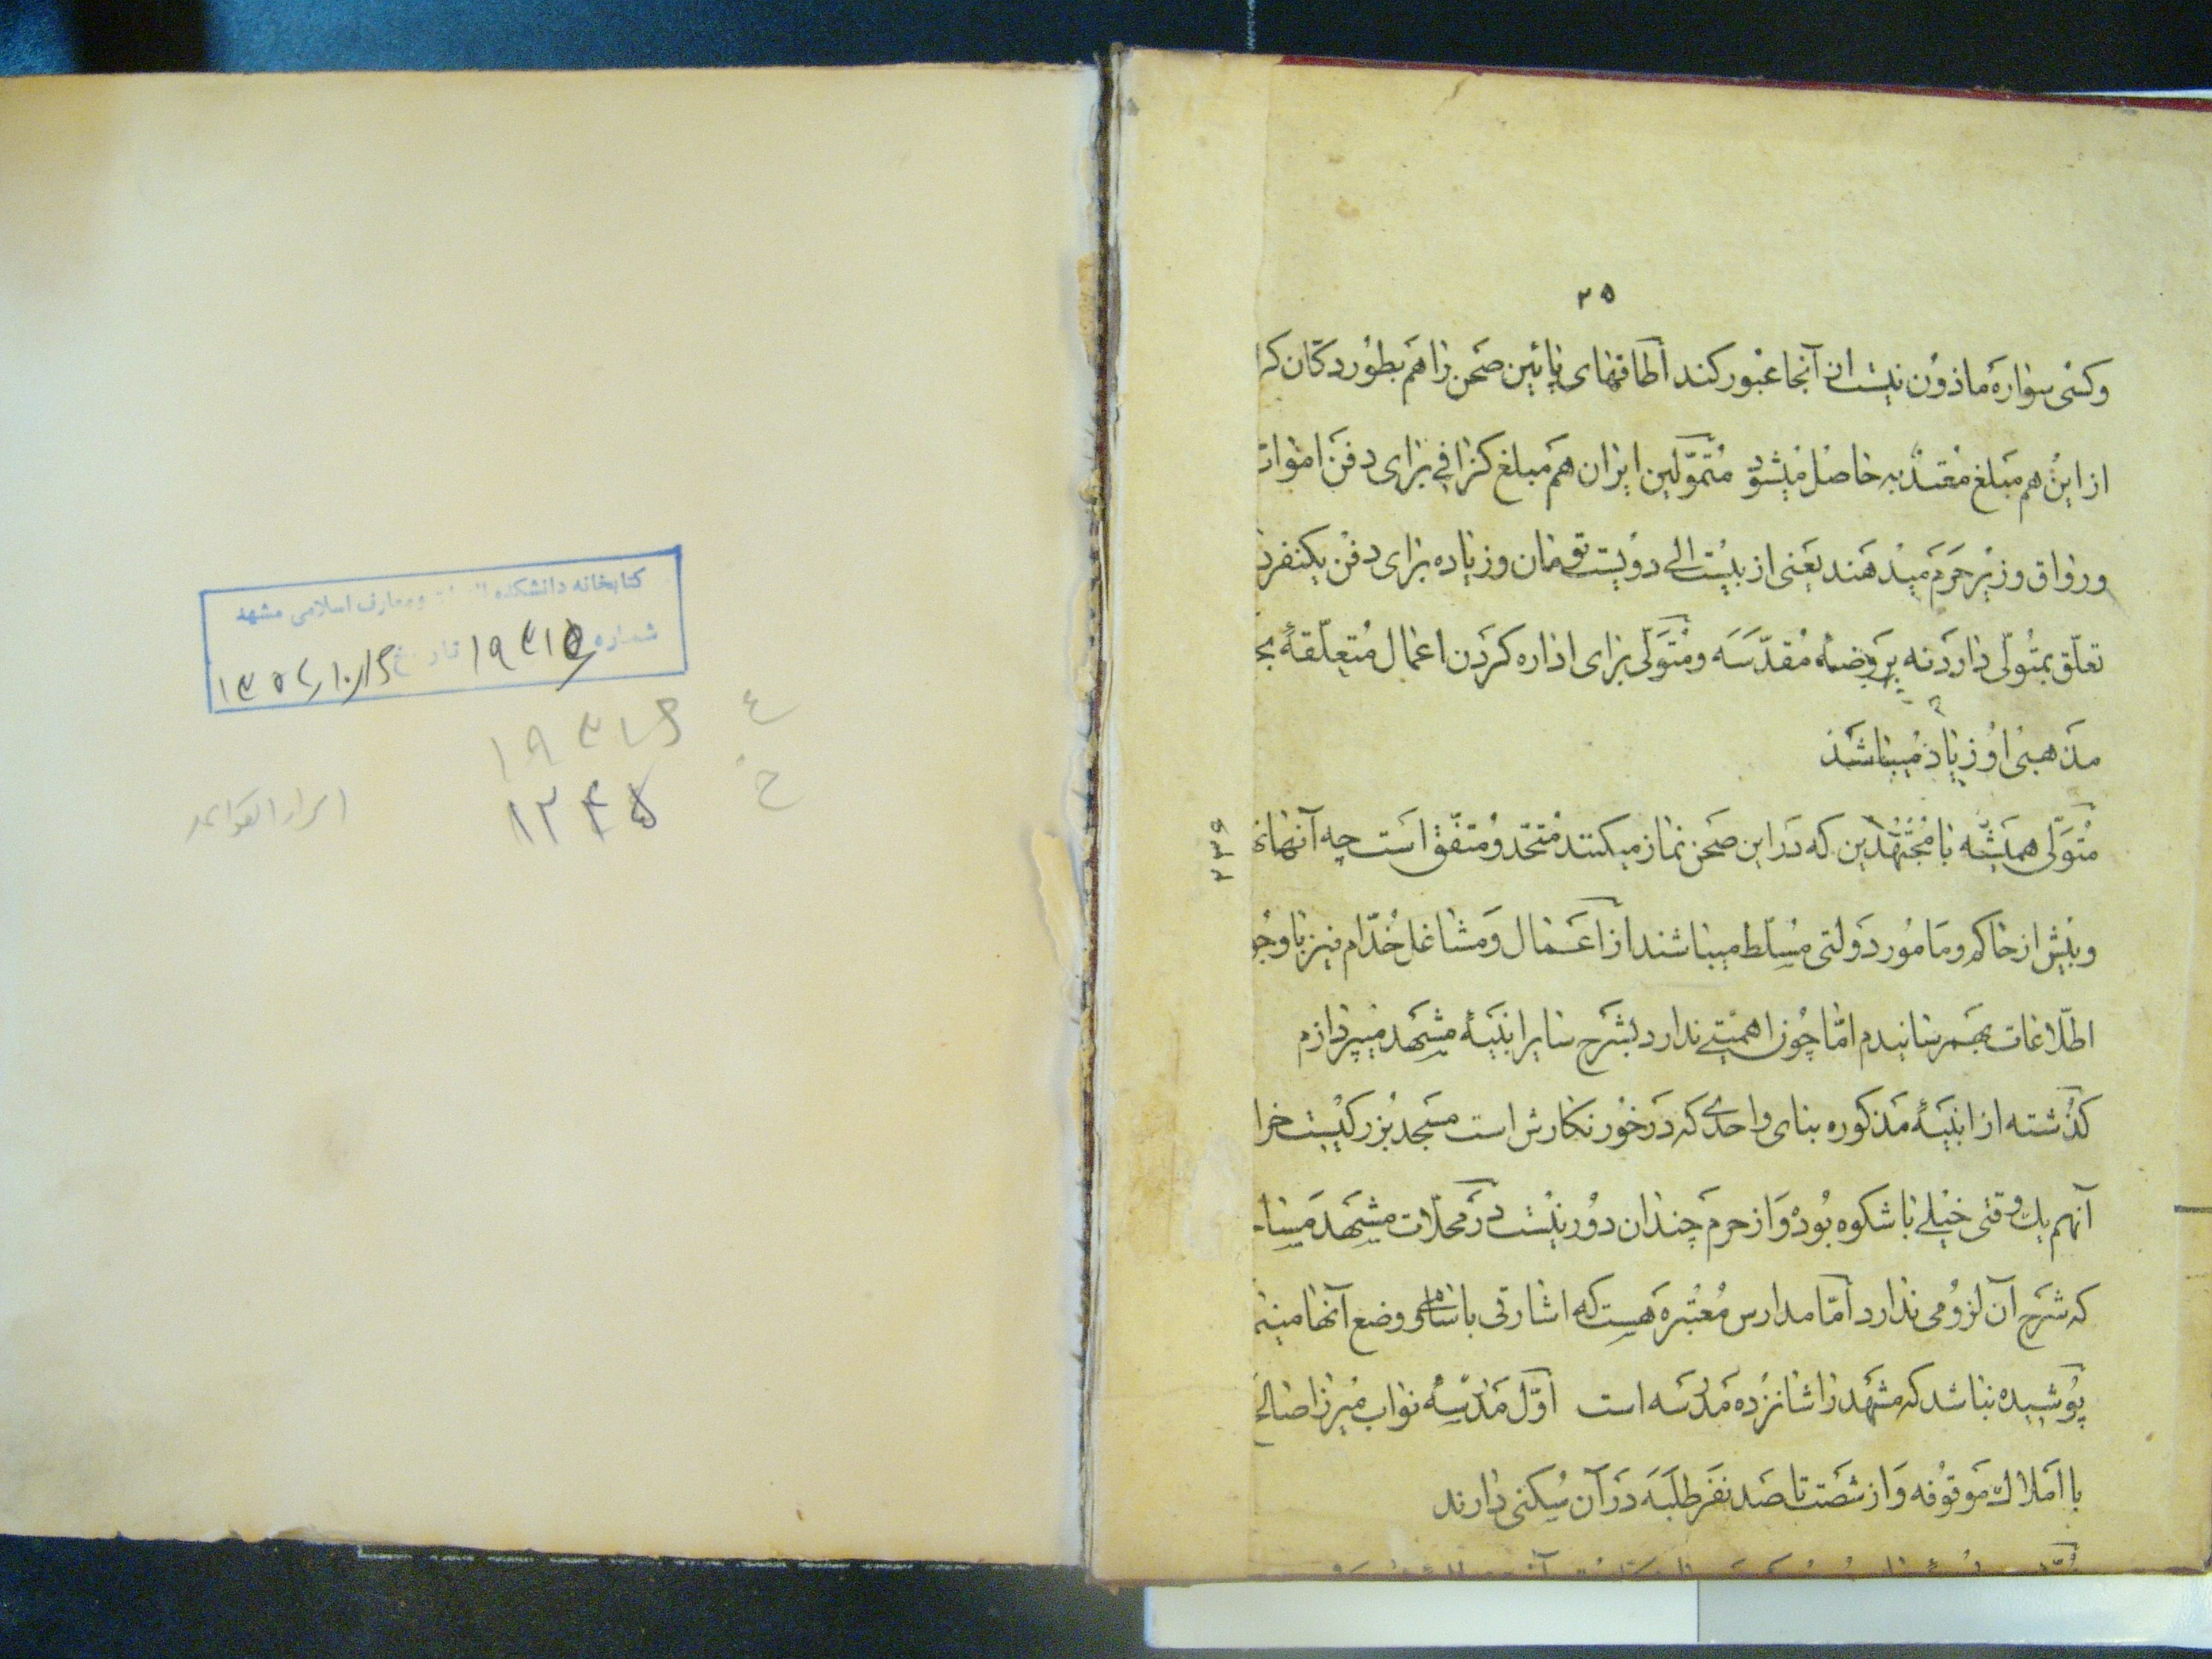 ۳۵
وکسی سواره ماذون نیست از آنجا عبور کند اطاقهای پائین صحن را هم بطور دکان کرا
از این هم مبلغ معتد به حاصل میشود متمولین ایران هم مبلغ گزافی برای دفن اموات
ورواق وزیر حرم میدهند یعنی از بیست الی دویست تومان وزیاده برای دفن یکنفر
تعلّق بمتولّی دارد نه بروضهٔ مقدّسه ومتولّی برای اداره کردن اعمال متعلّقهٔ
مذهبی او زیاد میباشد
متولّی همیشه با مجتهدین که در این صحن نماز میکنند متحد ومتفّق است چه آنها
وبیش از حاکم ومامور دولتی مسلط میباشند از اعمال ومشاغل خدّام نیز با
اطّلاعات بهم رسانیدم امّا چون اهمیتی ندارد بشرح سایر ابنیهٔ مشهد میپردازم
گذشته از ابنیهٔ مذکوره بنای واحدی که درخور نگارش است مسجد بزرگیست
آنهم یک وقتی خیلی با شکوه بوده واز حرم چندان دور نیست در محلّات مشهد
که شرح آن لزومی ندارد امّا مدارس معتبره هست که اشارتی باسامی ووضع آنها
پوشیده نباشد که مشهد را شانزده مدرسه است اوّل مدرسهٔ نواب میرزا صالح
با املاک موقوفه واز شصت تا صد نفر طلبه در آن سکنی دارند
۲۳۶
کتابخانه دانشکده الهیات ومعارف اسلامی مشهد
شماره ۱۹۳۱۵ تاریخ
ع ۱۹۳۱۶
خ ۱۲۴۵
اسرار القواعد